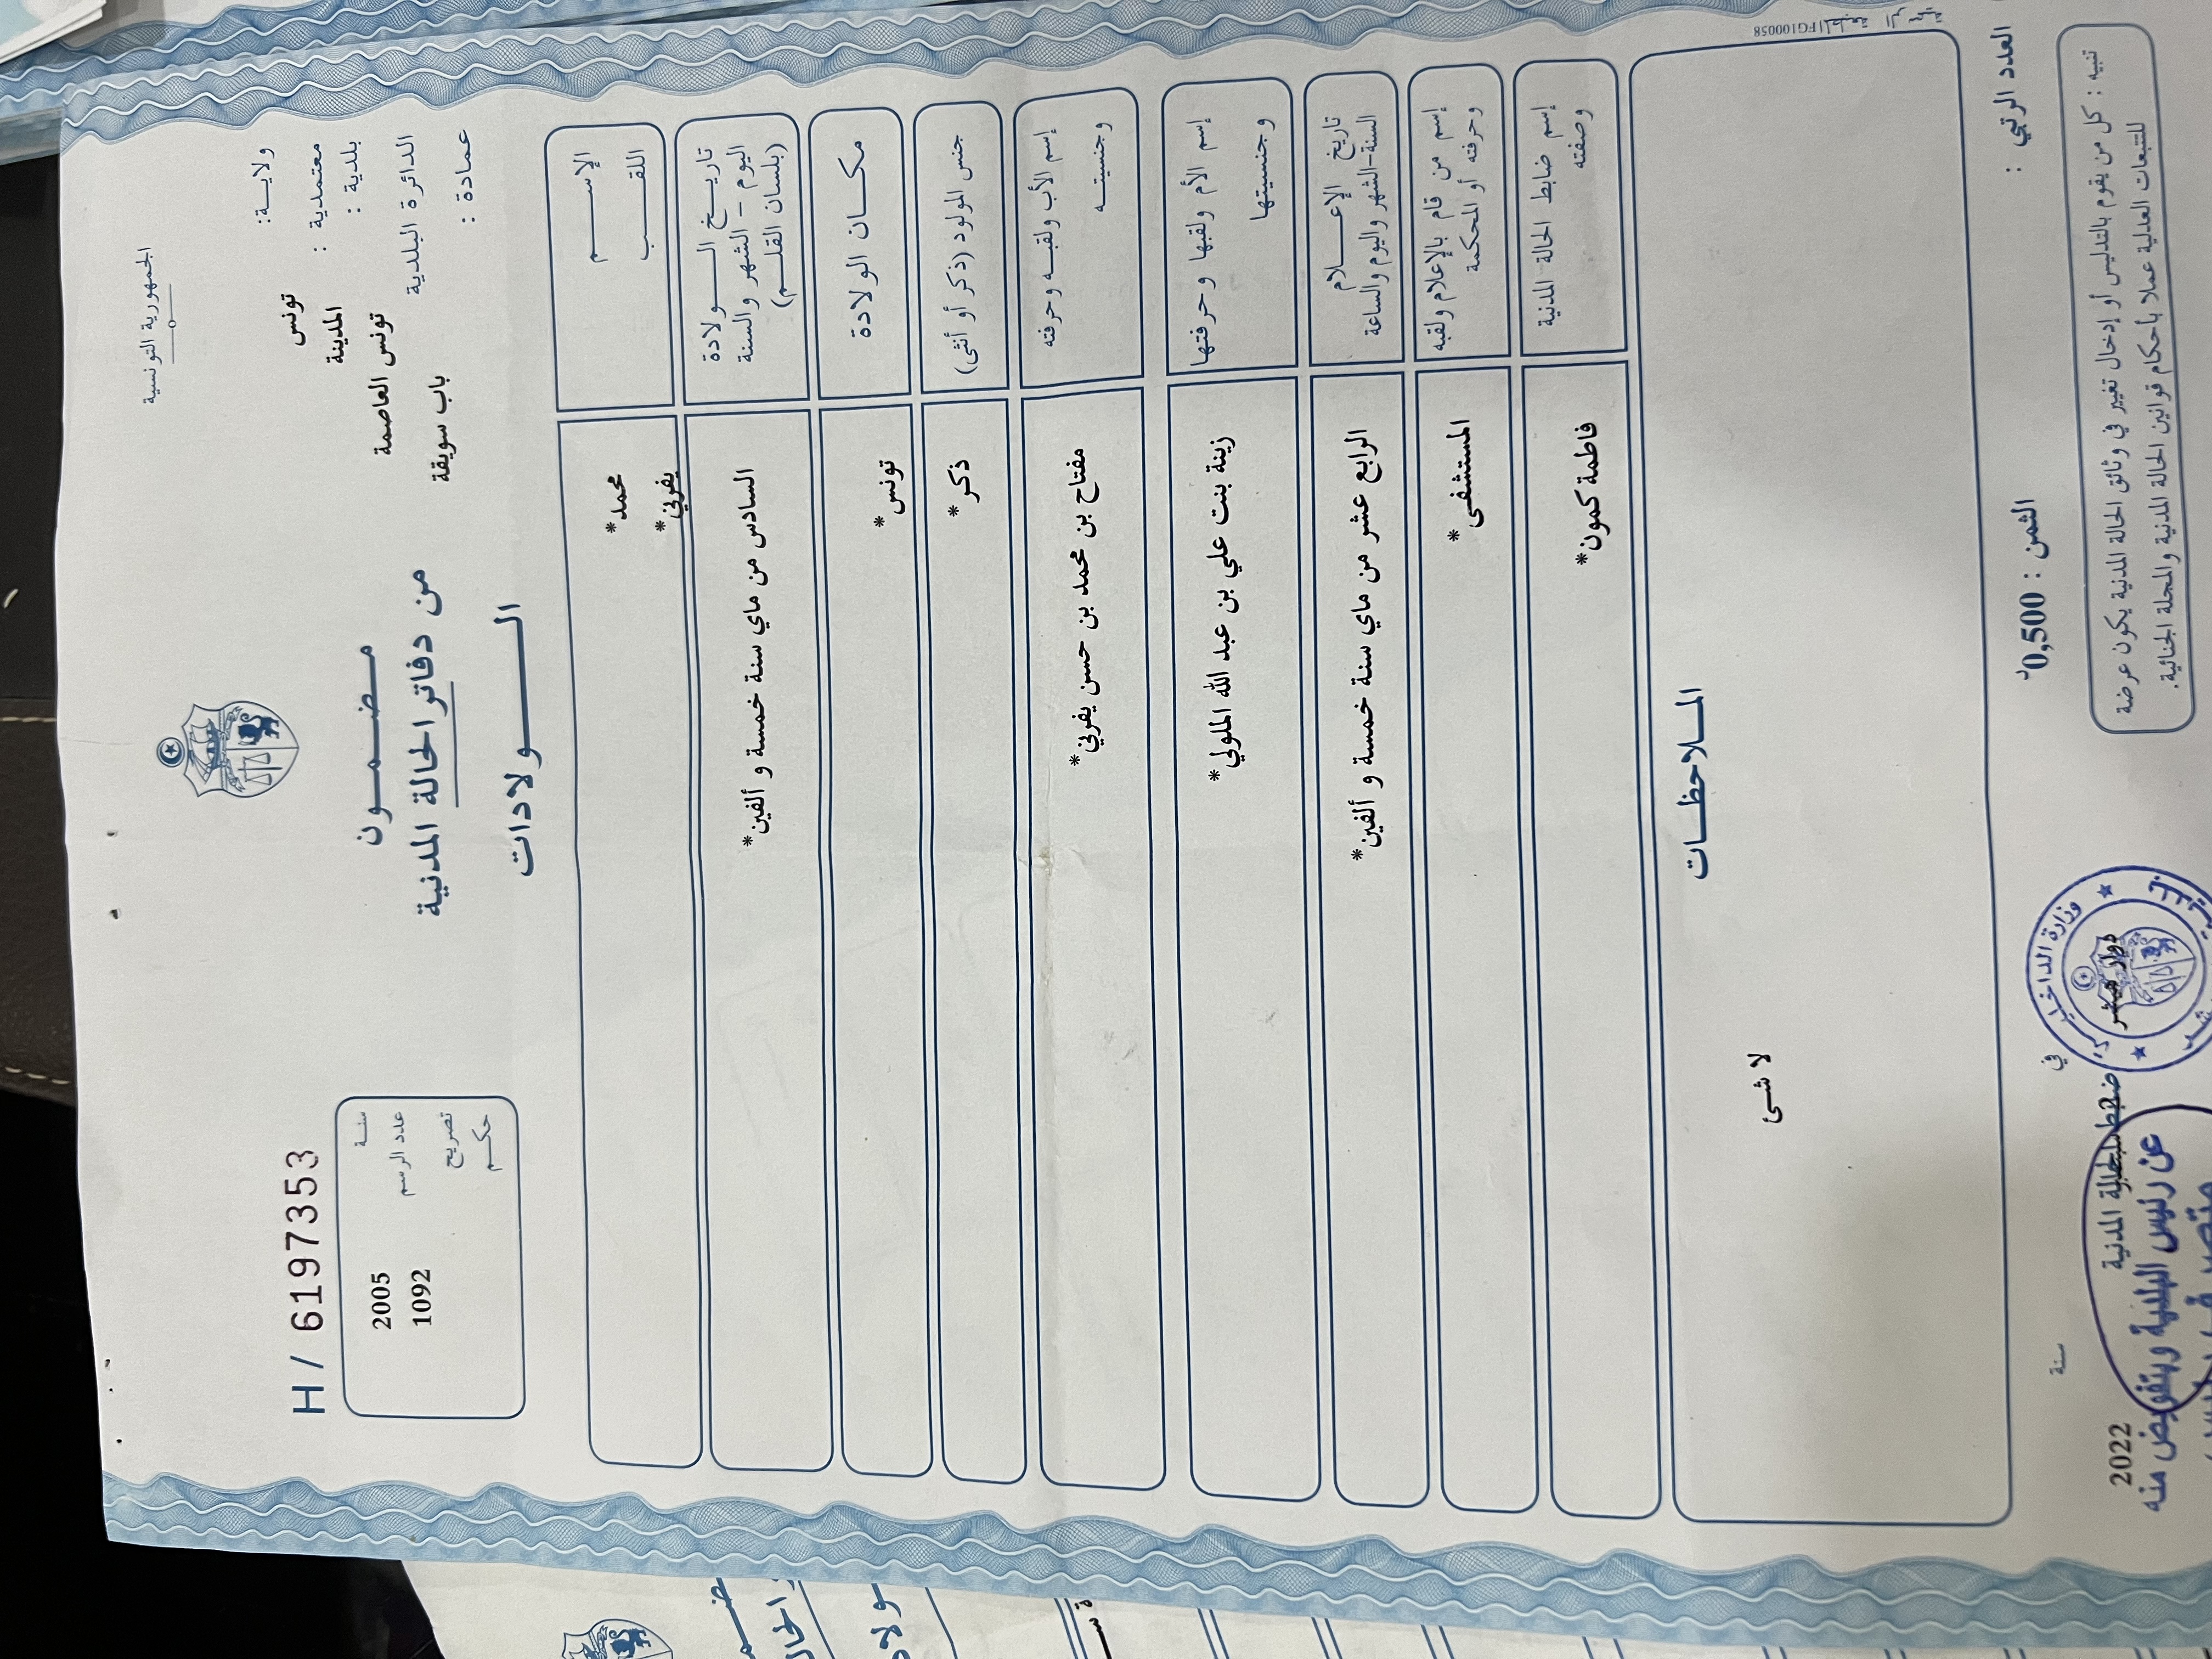 الجمهورية التونسية
ولايــة: تونس
معتمدية : المدينة
بلدية : تونس العاصمة
الدائرة البلدية باب سويقة
عمادة :
مـضـمـــون
من دفاتر الحالة المدنية
الـــــولادات
H / 6197353
سنـة 2005
عدد الرسم 1092
تصريح
حكـم
الإســـــم محمد*
اللقـــــب يفرني*
تاريـــخ الـــــولادة
اليوم - الشهر والسنة
(بلسان القلـــم)
السادس من ماي سنة خمسة و ألفين*
مكـــان الولادة
تونس*
جنس المولود (ذكر أو أنثى)
ذكر*
إسم الأب ولقبـه وحرفته
وجنسيتـــه
مفتاح بن محمد بن حسن يفرني*
إسم الأم ولقبها وحرفتها
وجنسيتها
زينة بنت علي بن عبد الله الملولي*
تاريخ الإعـــــلام
السنة-الشهر واليوم والساعة
الرابع عشر من ماي سنة خمسة و ألفين*
إسم من قام بالإعلام ولقبه
وحرفته أو المحكمة
المستشفى*
إسم ضابط الحالة المدنية
وصفته
فاطمة كمون*
المـلاحظـــات
لا شئ
FG100058
العدد الرتبي :
الثمن : 0,500د
تنبيه : كل من يقوم بالتدليس أو إدخال تغيير في وثائق الحالة المدنية يكون عرضة
للتتبعات العدلية عملا بأحكام قوانين الحالة المدنية والمجلة الجنائية.
في
سنة
2022
وزارة الداخلية
دوار هيشر
ضابط الحالة المدنية
عن رئيس البلدية وبتفويض منه
متصرف
ضمـ
ولا